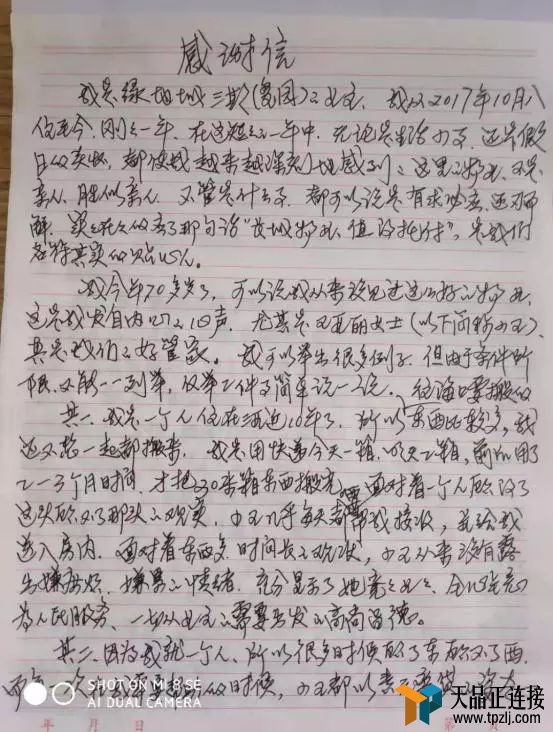 感谢信
我是绿地城三期(魯园)之业主，我从2017年10月入
住至今，刚之一年，在这短之一年中，无论是生活小事，还是假
日的卖场，都使我越来越深刻地感到：这里之物业，不是
亲人，胜似亲人，不管是什么事，都可以说是有求必应，迎刃而
解，实之在之做到了那句话"长城物业，值的托付"，是我们
名符其实的贴心人。
我今年70多岁了，可以说我从来没见过这么好之物业，
这是我发自内心之心声，尤其是王亚丽女士(以下简称小王)，
真是我们之好管家。我可以举出很多例子，但由于条件所
限，不能一一列举，仅举二件事简单说一说。
其一、我是一个人住在 近10年了，所以东西比较多，我
还不想一起都搬来，我是用快递今天一箱，明天二箱，前后用
了二三个月时间，才把30来箱东西搬完，面对着一个人顾得了
这头顾不了那头之现实，小王几乎每天都帮我接收，并给我
送入房内，面对着东西多，时间长之现状，小王从来没有露
出嫌麻烦，嫌累之情绪，充分显示了她 全心全意
为人民服务，一切从业主之需要出发之高尚品德。
其二、因为我就一个人，所以很多时候顾了东顾不了西，
的时候，小王都以
SHOT ON MI 8 SE
AI DUAL CAMERA
年 月 日
第 页
天品正连接
www.tpzlj.com